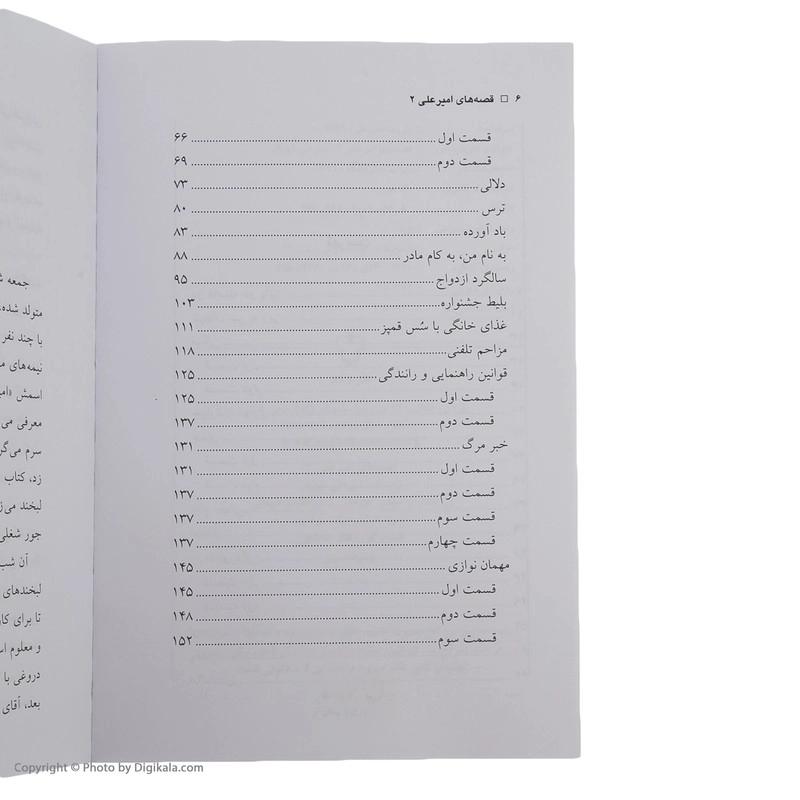 ۶ □ قصه‌های امیرعلی ۲
قسمت اول ........ ۶۶
قسمت دوم ........ ۶۹
دلالی ........ ۷۳
ترس ........ ۸۰
باد آورده ........ ۸۳
به نام من، به کام مادر ........ ۸۸
سالگرد ازدواج ........ ۹۵
بلیط جشنواره ........ ۱۰۳
غذای خانگی با سُس قمپز ........ ۱۱۱
مزاحم تلفنی ........ ۱۱۸
قوانین راهنمایی و رانندگی ........ ۱۲۵
قسمت اول ........ ۱۲۵
قسمت دوم ........ ۱۳۷
خبر مرگ ........ ۱۳۱
قسمت اول ........ ۱۳۱
قسمت دوم ........ ۱۳۷
قسمت سوم ........ ۱۳۷
قسمت چهارم ........ ۱۳۷
مهمان نوازی ........ ۱۴۵
قسمت اول ........ ۱۴۵
قسمت دوم ........ ۱۴۸
قسمت سوم ........ ۱۵۲
جمعه
متولد شده،
با چند نفر
نیمه‌های
اسمش
معرفی می
سرم می‌گر
زد، کتاب
لبخند می‌ز
جور شغلی
آن شب
لبخندهای
تا برای کار
و معلوم
دروغی با
بعد، آقای
Copyright © Photo by Digikala.com